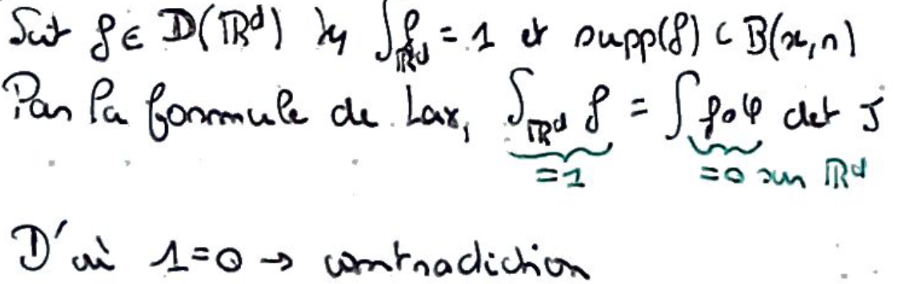 Soit f ∈ D(ℝᵈ) tq ∫_ℝᵈ f = 1 et supp(f) ⊂ B(x,r)
Par la formule de Lax, ∫_ℝᵈ f = ∫ f∘φ det J
=1 =0 sur ℝᵈ
D'où 1=0 → contradiction